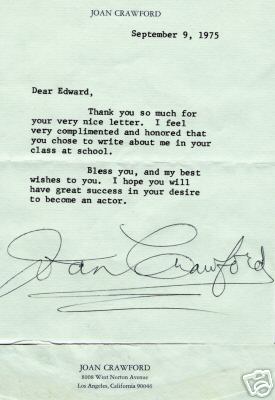 JOAN CRAWFORD
September 9, 1975
Dear Edward,
Thank you so much for
your very nice letter. I feel
very complimented and honored that
you chose to write about me in your
class at school.
Bless you, and my best
wishes to you. I hope you will
have great success in your desire
to become an actor.
Joan Crawford
JOAN CRAWFORD
8008 West Norton Avenue
Los Angeles, California 90046